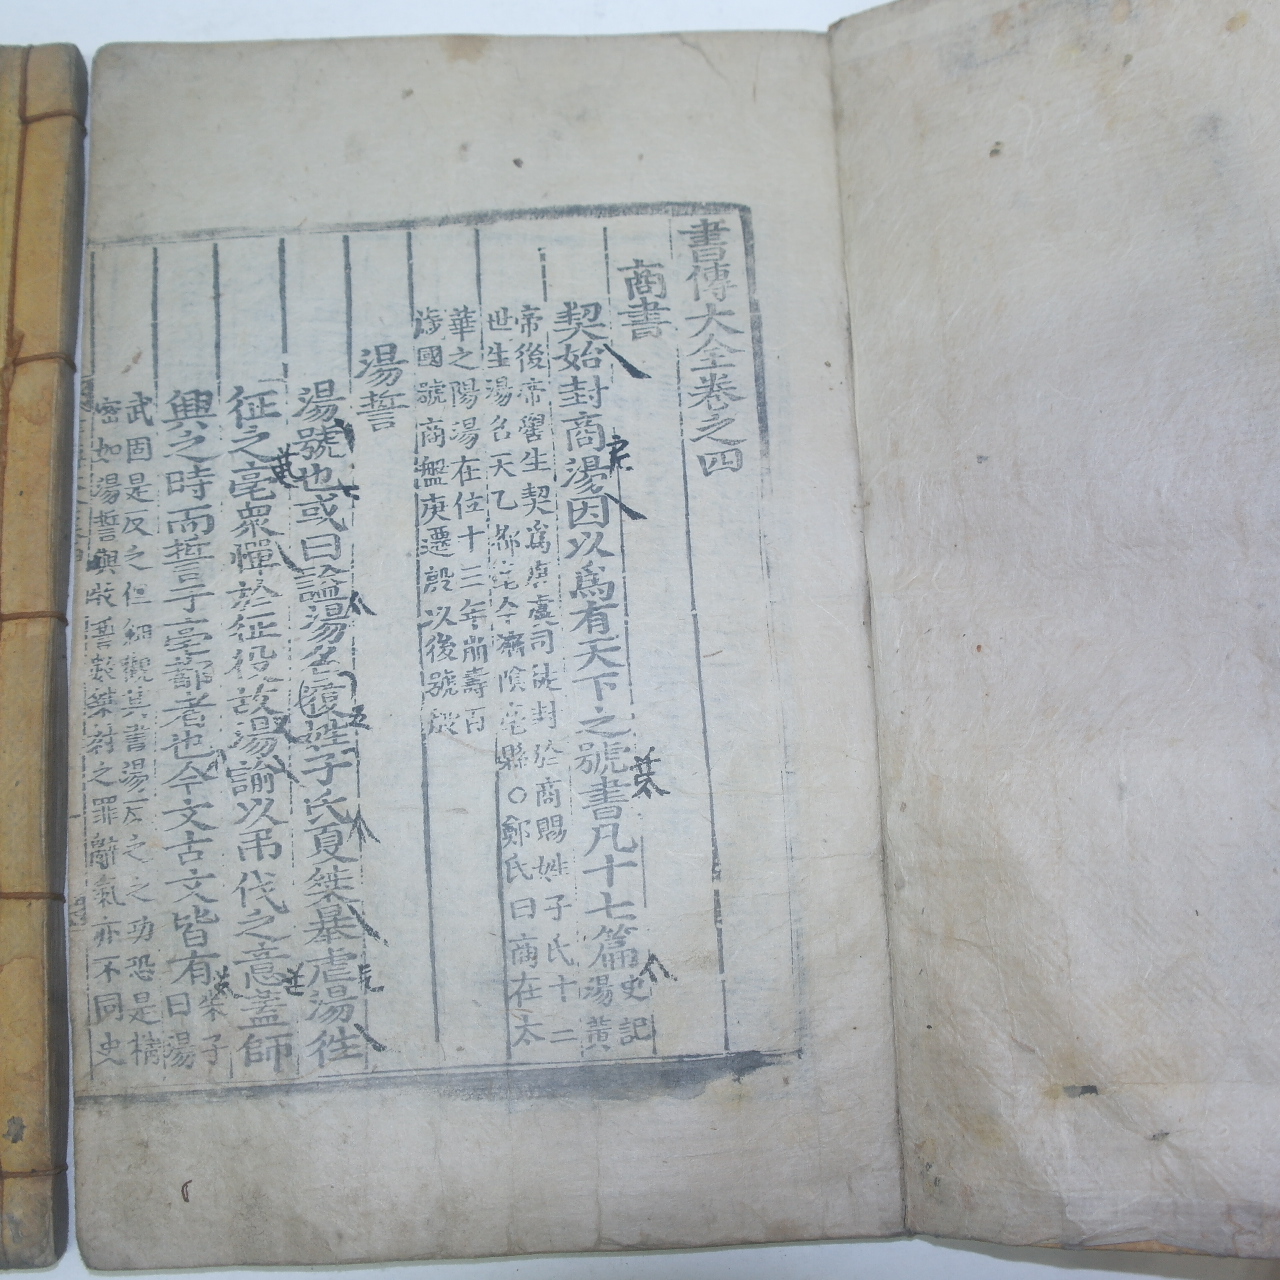 書傳大全卷之四
商書
契始封商湯因以爲有天下之號書凡十七篇
史記
湯黃
帝後帝嚳生契爲唐虞司徒封於商賜姓子氏十二
世生湯名天乙都亳今濟陰亳縣○鄭氏曰商在太
華之陽湯在位十三年崩壽百
歲國號商盤庚遷殷以後號殷
湯誓
湯號也或曰諡湯名履姓子氏夏桀暴虐湯往
征之亳衆憚於征役故湯諭以弔伐之意蓋師
興之時而誓于亳都者也今文古文皆有
朱子
曰湯
武固是反之但細觀其書湯反之之功恐是精
密如湯誓與牧誓數桀紂之罪辭氣亦不同史